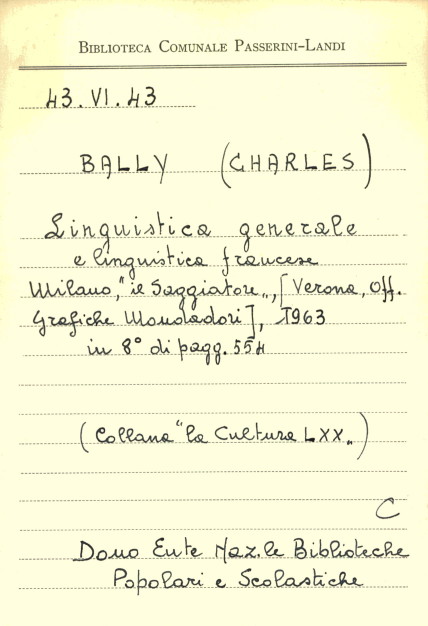 BIBLIOTECA COMUNALE PASSERINI-LANDI
43.VI.43
BALLY (CHARLES)
Linguistica generale
e linguistica francese
Milano, "il Saggiatore", [Verona, Off.
Grafiche Mondadori], 1963
in 8° di pagg. 554
(Collana "la Cultura LXX")
C
Dono Ente Naz.le Biblioteche
Popolari e Scolastiche